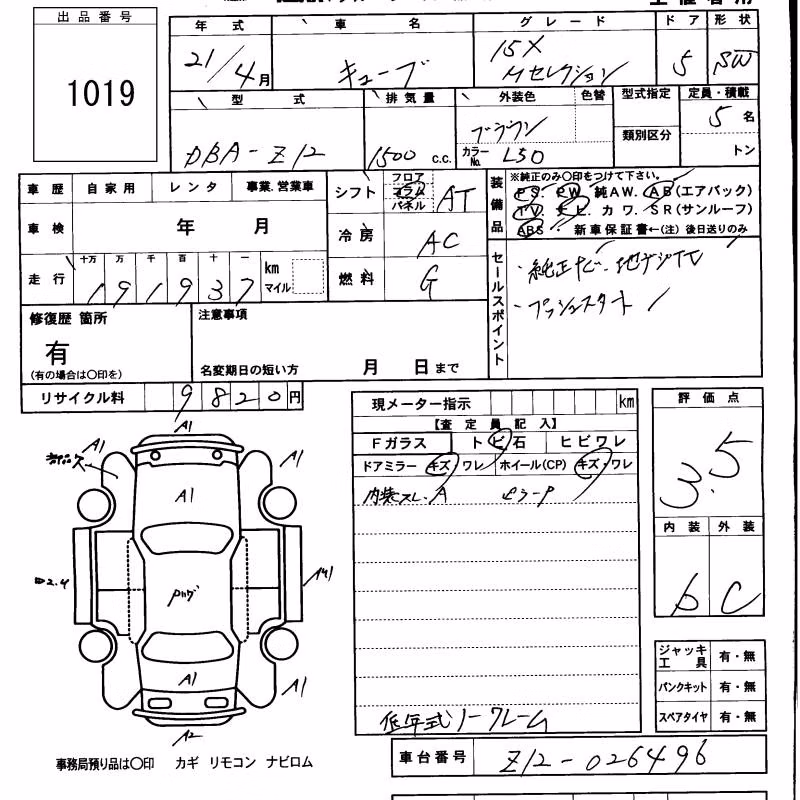 出品番号
1019
年式
車名
グレード
ドア
形状
21/4月
キューブ
15X
Mセレクション
5
SW
型式
排気量
外装色
色替
型式指定
定員・積載
DBA-Z12
1500 c.c.
ブラウン
カラーNo. L50
類別区分
5名
トン
車歴
自家用
レンタ
事業.営業車
車検
年 月
走行
十万 万 千 百 十 一
191937
km
マイル
シフト
フロア
コラム
パネル
AT
冷房
AC
燃料
G
装備品
※純正のみ〇印をつけて下さい。
PS. PW. 純AW. AB(エアバック)
TV. ナビ. カワ. SR(サンルーフ)
ABS. 新車保証書←(注) 後日送りのみ
セールスポイント
・純正ナビ. 地デジTV
・プッシュスタート
修復歴 箇所
有
(有の場合は〇印を)
注意事項
名変期日の短い方 月 日まで
リサイクル料
9820円
現メーター指示
km
【査定員記入】
Fガラス
トビ石
ヒビワレ
ドアミラー
キズ・ワレ
ホイール(CP)
キズ・ワレ
内装スレ.A ピラーP
低年式ノークレーム
評価点
3.5
内装
外装
b
C
A1
A1
A1
A1
A1
A1
A2
ジャッキ工具
有・無
パンクキット
有・無
スペアタイヤ
有・無
車台番号
Z12-026496
事務局預り品は〇印 カギ リモコン ナビロム